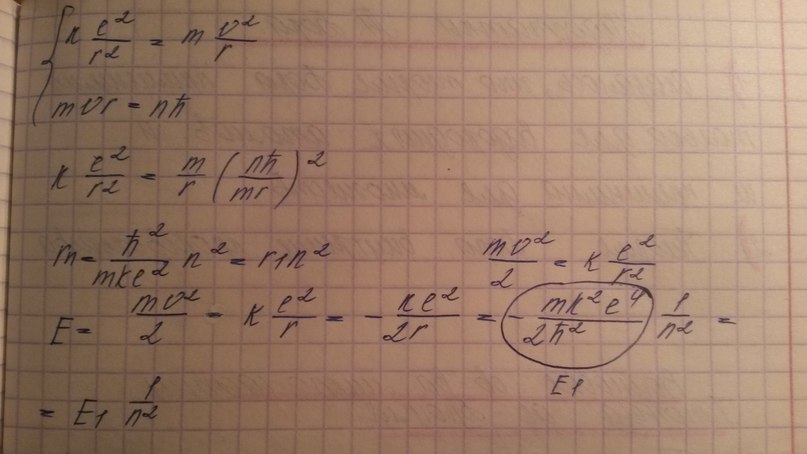 { k e²/r² = m υ²/r
mυr = nħ
k e²/r² = m/r (nħ/mr)²
rn = ħ²/mke² n² = r₁n²   mυ²/2 = k e²/r²
E = mυ²/2 - k e²/r = - ke²/2r = - mk²e⁴/2ħ² 1/n² =
E₁
= E₁ 1/n²